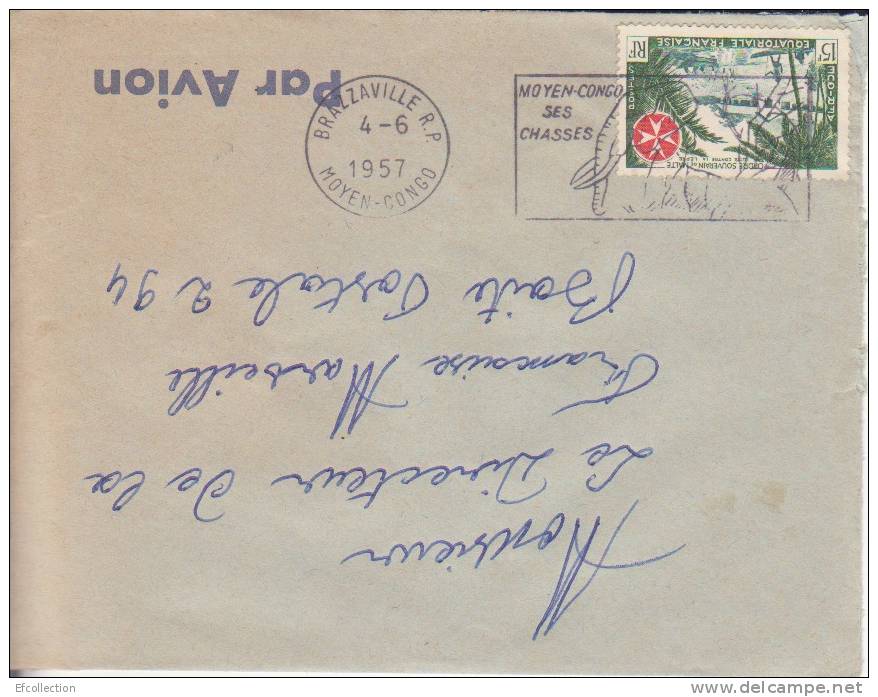 Par Avion
BRAZZAVILLE R.P.
4-6
1957
MOYEN-CONGO
MOYEN-CONGO
SES
CHASSES
15F
RF
EQUATORIALE FRANÇAISE
ORDRE SOUVERAIN DE MALTE
LUTTE CONTRE LA LEPRE
POSTES
Monsieur
Le Directeur de la
Francaise Marseille
Boite Postale 2 94
Efcollection
www.delcampe.net